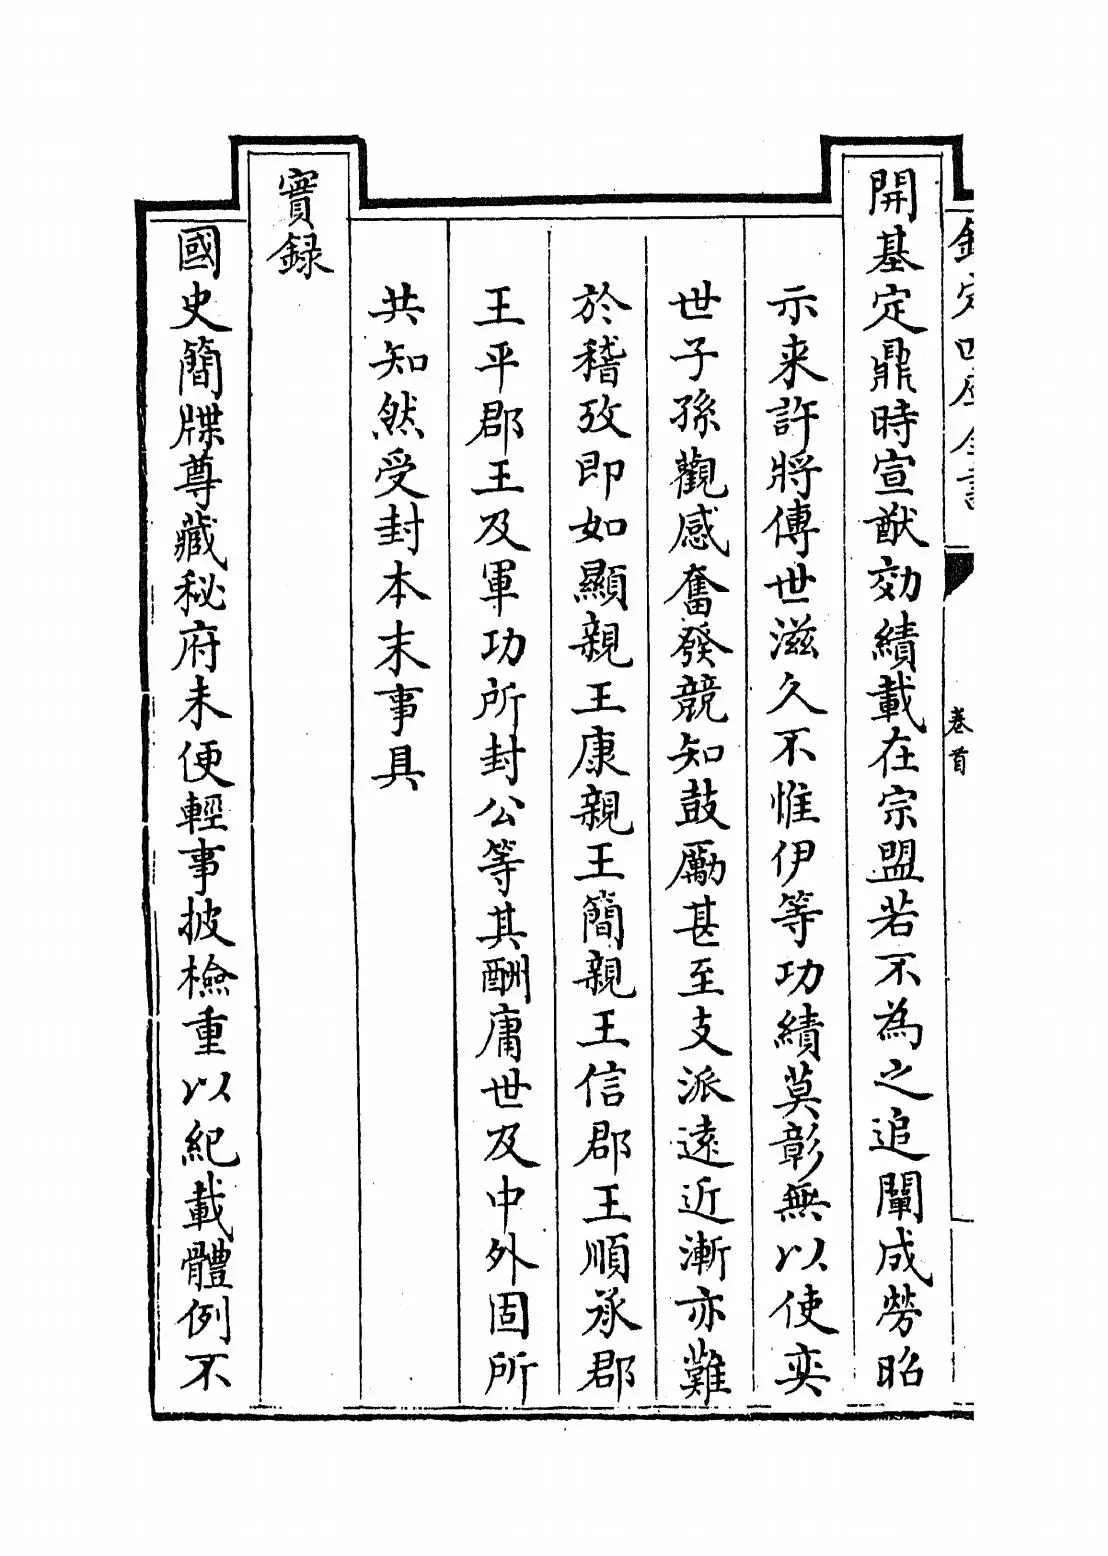 欽定四庫全書
卷首
開基定鼎時宣猷効績載在宗盟若不為之追闡成勞昭
示来許將傳世滋久不惟伊等功績莫彰無以使奕
世子孫觀感奮發競知鼓勵甚至支派遠近漸亦難
於稽攷即如顯親王康親王簡親王信郡王順承郡
王平郡王及軍功所封公等其酬庸世及中外固所
共知然受封本末事具
實録
國史簡牒尊藏秘府未便輕事披檢重以紀載體例不